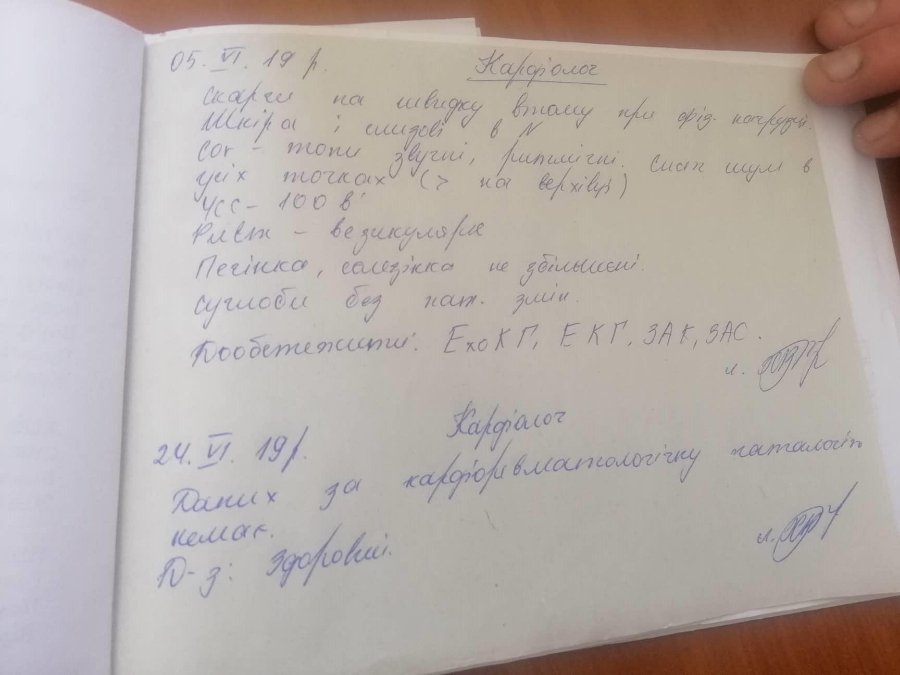 05. VI. 19 р. Кардіолог
Скарги на швидку втому при фіз. нагрузці.
Шкіра і слизові в N
Cor - тони звучні, ритмічні. Сист шум в
усіх точках (> на верхівці)
ЧСС - 100 в'
- везикулярне
Печінка, селезінка не збільшені.
Суглоби без пат. змін.
Дообстежити: ЕхоКГ, ЕКГ, ЗАК, ЗАС.
л.
24. VI. 19 р. Кардіолог
Даних за кардіоревматологічну паталогію
немає.
D-з: Здоровий.
л.